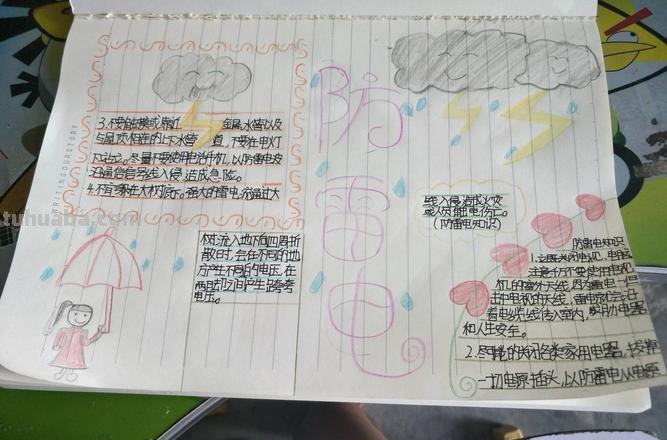 防雷电
防雷电知识
1.立即关闭电视、电脑
注意千万不要使用电视
机的室外天线,因为雷电一但
击中电视的天线,雷电就会沿
着电缆线传入室内,威胁电器
和人生安全。
2.尽可能的关闭各类家用电器,拔掉
一切电源插头,以防雷电从电源
线入侵造成火灾
或人员触电伤亡。
(防雷电知识)
3.不要触摸或靠近 金属水管以及
与屋顶相连的上下水管道,不要在电灯
下站立。尽量不要使用电话手机,以防雷电波
沿通信信号线入侵,造成危险。
4.不宜躲在大树底下。强大的雷电流通过大
树流入地下向四周扩
散时,会在不同的地
方产生不同的电压,在
两脚之间产生跨步
电压。
WRITING OUR STORY
tuhuaba.com